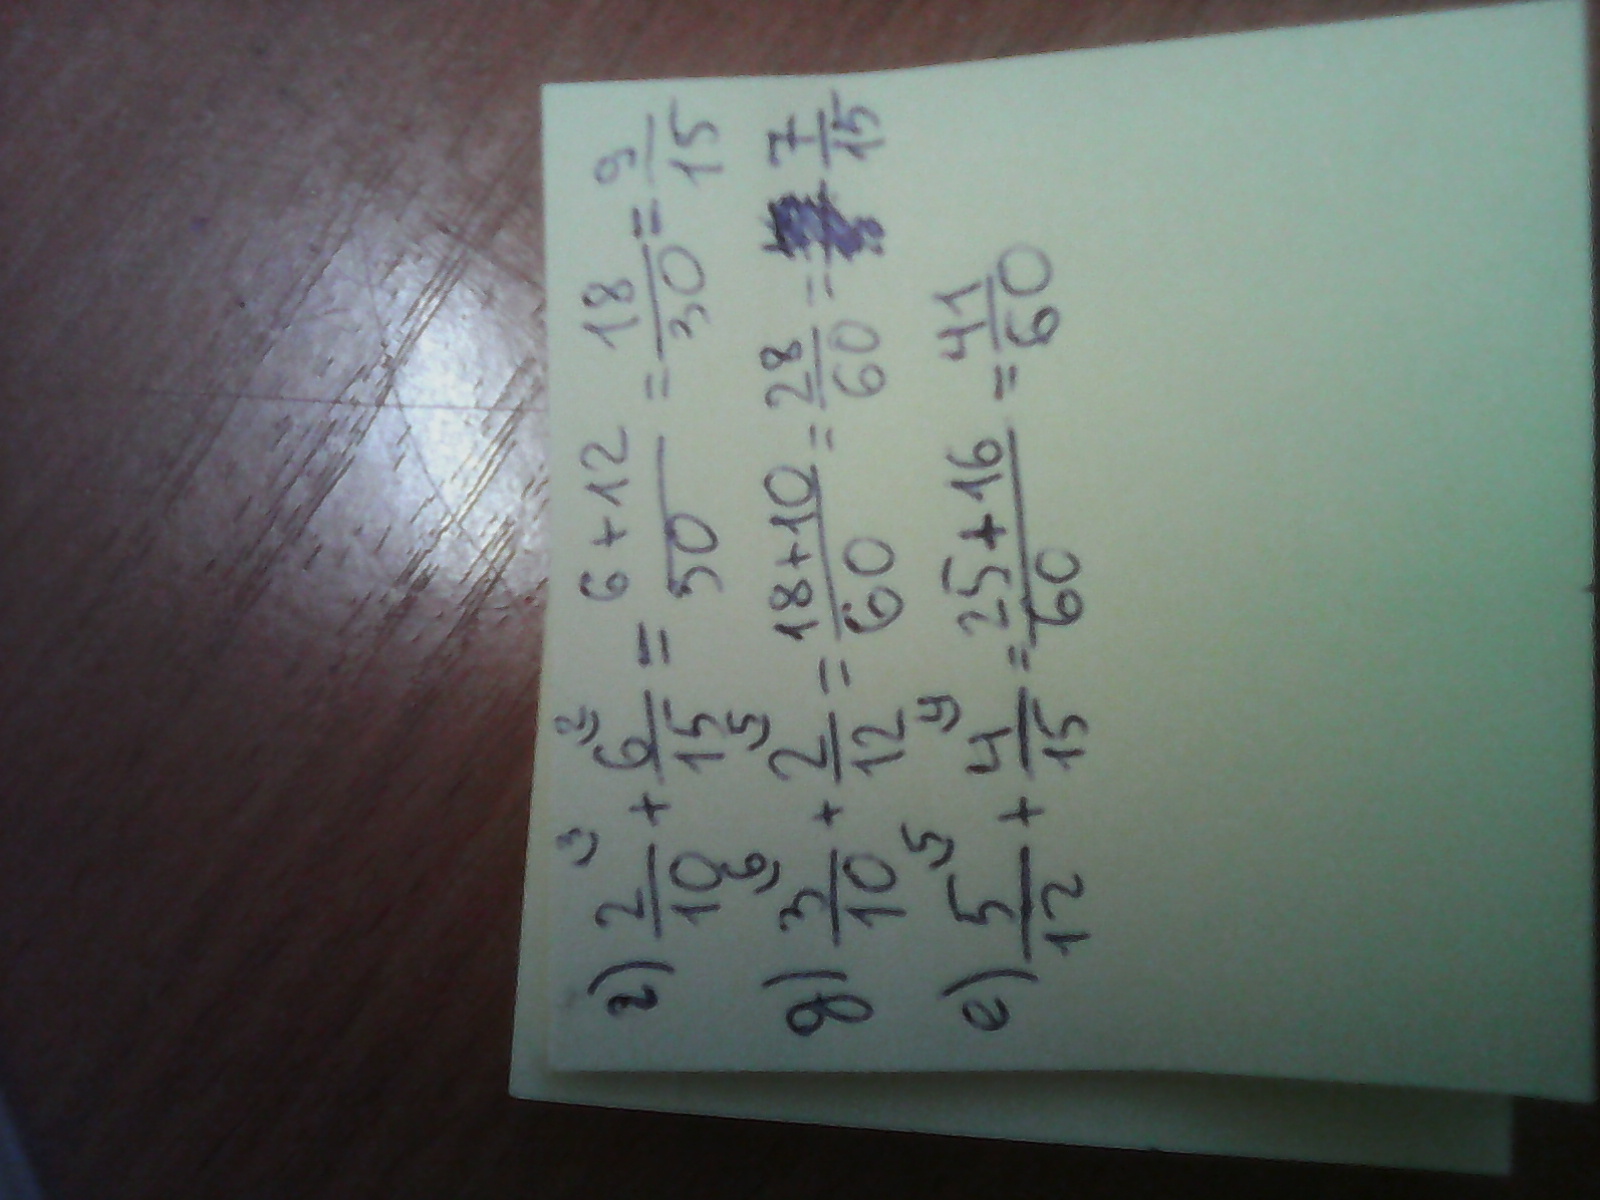 г) 2/10 ⁾³ + 6/15 ⁾² = 6+12/30 = 18/30 = 9/15
д) 3/10 ⁾⁶ + 2/12 ⁾⁵ = 18+10/60 = 28/60 = 7/15
е) 5/12 ⁾⁵ + 4/15 ⁾⁴ = 25+16/60 = 41/60